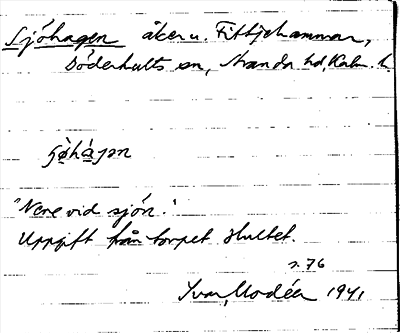 Sjöhagen åker u. Fittjehammar,
Döderhults sn, Stranda hd, Kalm. l.
"Nere vid sjön."
Uppgift från torpet Hultet.
s. 76
Ivar Modéer 1941